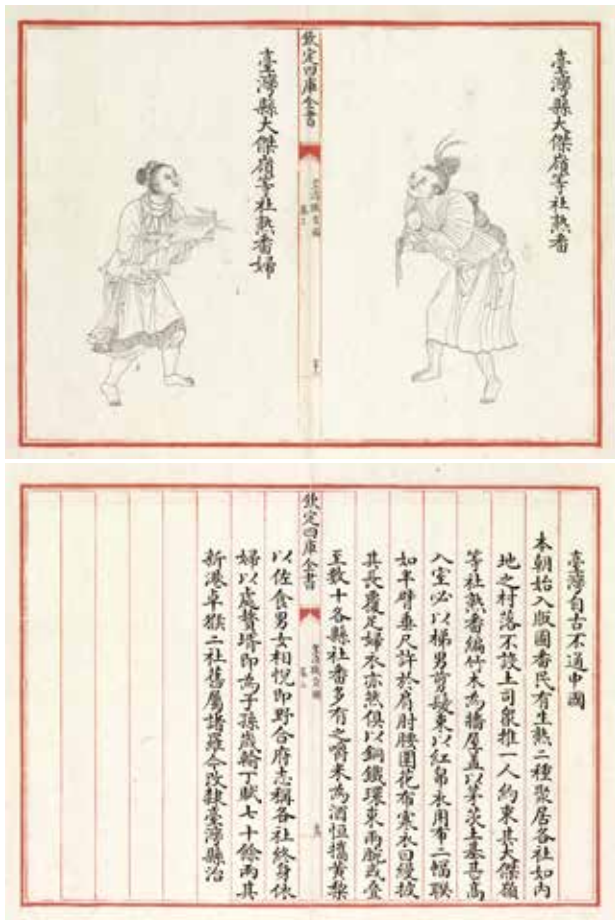 臺灣縣大傑嶺等社熟番
欽定四庫全書
皇清職貢圖
臺灣縣大傑嶺等社熟番婦
臺灣自古不通中國
本朝始入版圖番民有生熟二種聚居各社如内
地之村落不設土司衆推一人約束其大傑嶺
等社熟番編竹木為牆屋蓋以茅茨土基甚高
入室必以梯男剪髮束以紅帛衣用布二幅聯
如半臂垂尺許於肩肘腰圍花布寒衣曰縵披
其長覆足婦衣亦然俱以銅鐵環束兩腕或疊
至數十各縣社番多有之嚼米為酒恒攜黄梨
欽定四庫全書
皇清職貢圖
以佐食男女相悦即野合府志稱各社終身依
婦以處贅壻即為子孫歲輸丁賦七十餘兩其
新港卓猴二社舊屬諸羅今改隸臺灣縣治